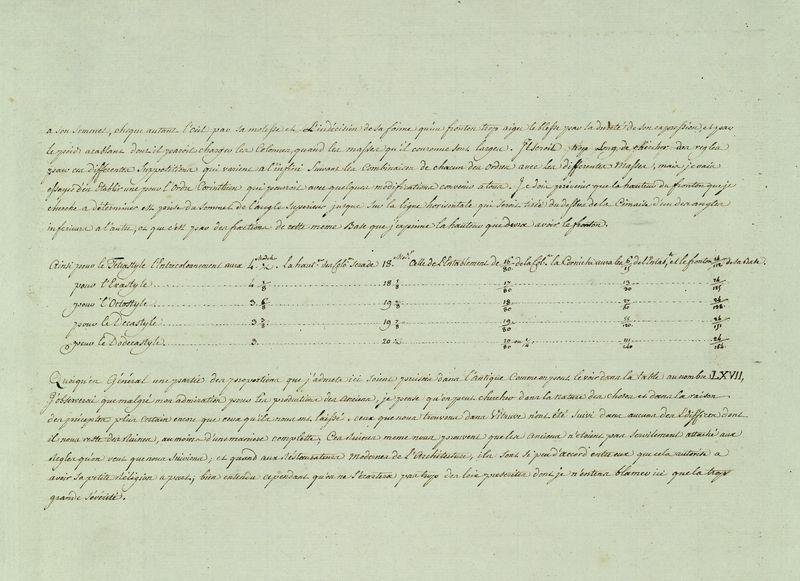 a son sommet, choque autant l'œil par sa molesse et l'indécision de sa forme qu'un fronton trop aigu le blesse par la dureté de son expression, et par
le poids acablant dont il paroit charger les Colonnes, quand les masses qu'il couronne sont larges. Il seroit trop long de chercher des regles
pour ces differentes qui varient a l'infini suivant les Combinaisons de chacun des Ordres avec les differentes Masses, mais je vais
essayer d'en Etablir une pour l'Ordre Corinthien qui pourroit avec quelques modifications convenir a tous. Je dois prévenir que la hauteur du fronton que je
cherche a déterminer est prise du sommet de l'angle Superieur jusque sur la ligne horisontale qui seroit tirée du dessus de la Cimaise d'un des angles
inferieurs a l'autre, et que c'est par des fractions de cette meme Base que j'exprime la hauteur que devra avoir le fronton.
Ainsi pour le Tetrastyle l'Entrecolonnement aura 4 la haut.r des Col.s sera de 18 Celle de l'Entablement de 16/80 de la Col.e la Corniche aura les de l'Entab.t et le fronton de la Base.
pour l'Exastyle 4 1/8 18 17/80
pour l'Octostyle 3 6/8 19 18/80
pour le Decastyle 3 19 19/80
pour le Dodecastyle 3. 20 20/80 ou 1/4
Quoiqu'en Général une partie des proportions que j'admets ici soient puisées dans l'antique Comme on peut le voir dans la table au nombre LXVII,
J'observerai que malgré mon admiration pour les productions des Anciens, je pense qu'on peut chercher dans la nature des choses et dans la raison
des principes plus certains encore que ceux qu'ils nous ont laissé. ceux que nous trouvons dans Vitruve n'ont été suivis dans aucuns des Edifices dont
il nous reste des Ruines, au moins d'une maniere complette, Ces ruines meme nous prouvent que les anciens n'etoient pas servilement attaché aux
Regles qu'on veut que nous suivions; et quand aux Restaurateurs Modernes de l'Architecture, ils sont si peu d'accord entre eux que cela autorise a
avoir sa petite Réligion a part; bien entendu cependant qu'on ne s'écartera pas trop des loix prescrites dont je n'entens blamer ici que la trop
grande Sévérité.